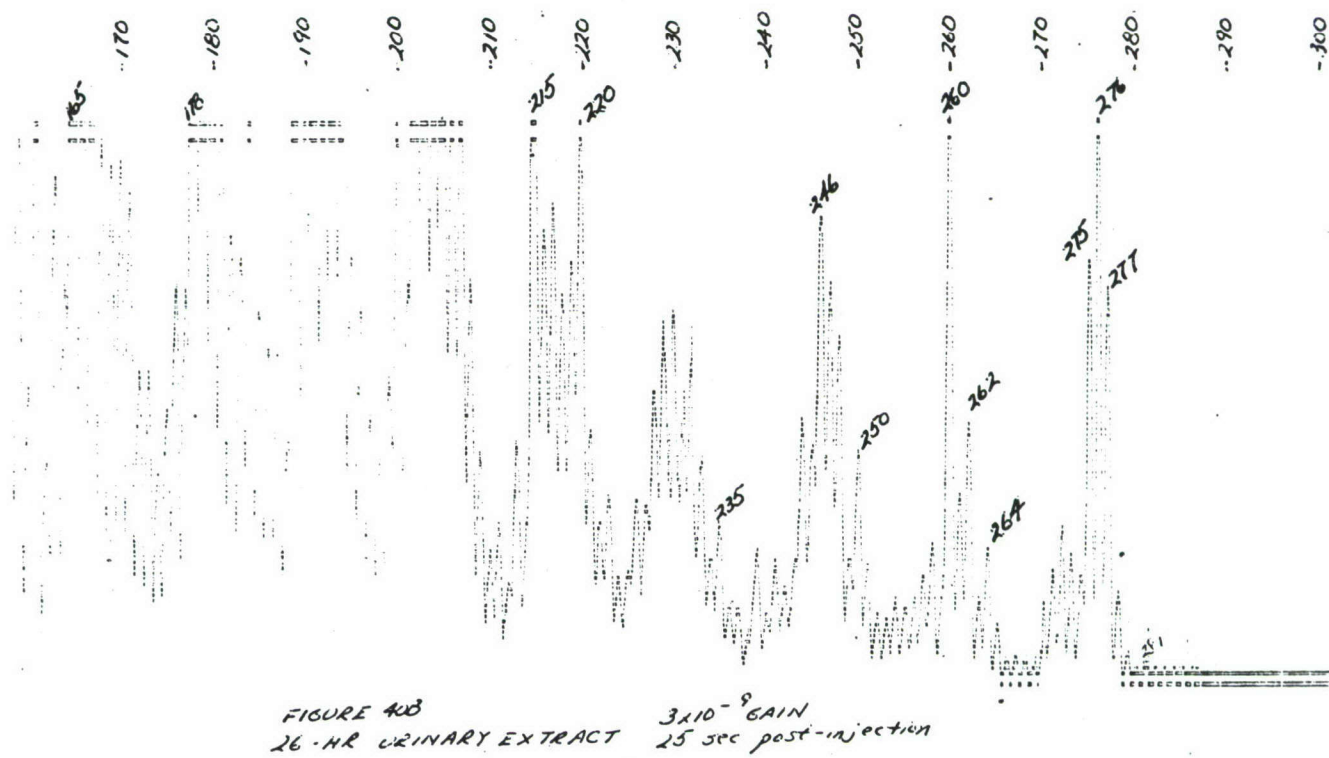 -170 -180 -190 -200 -210 -220 -230 -240 -250 -260 -270 -280 -290 -300
165 178 215 220 260 276
246 275
277
262
250
235 264
281
FIGURE 40B 3x10-9 GAIN
26-HR URINARY EXTRACT 25 sec post-injection